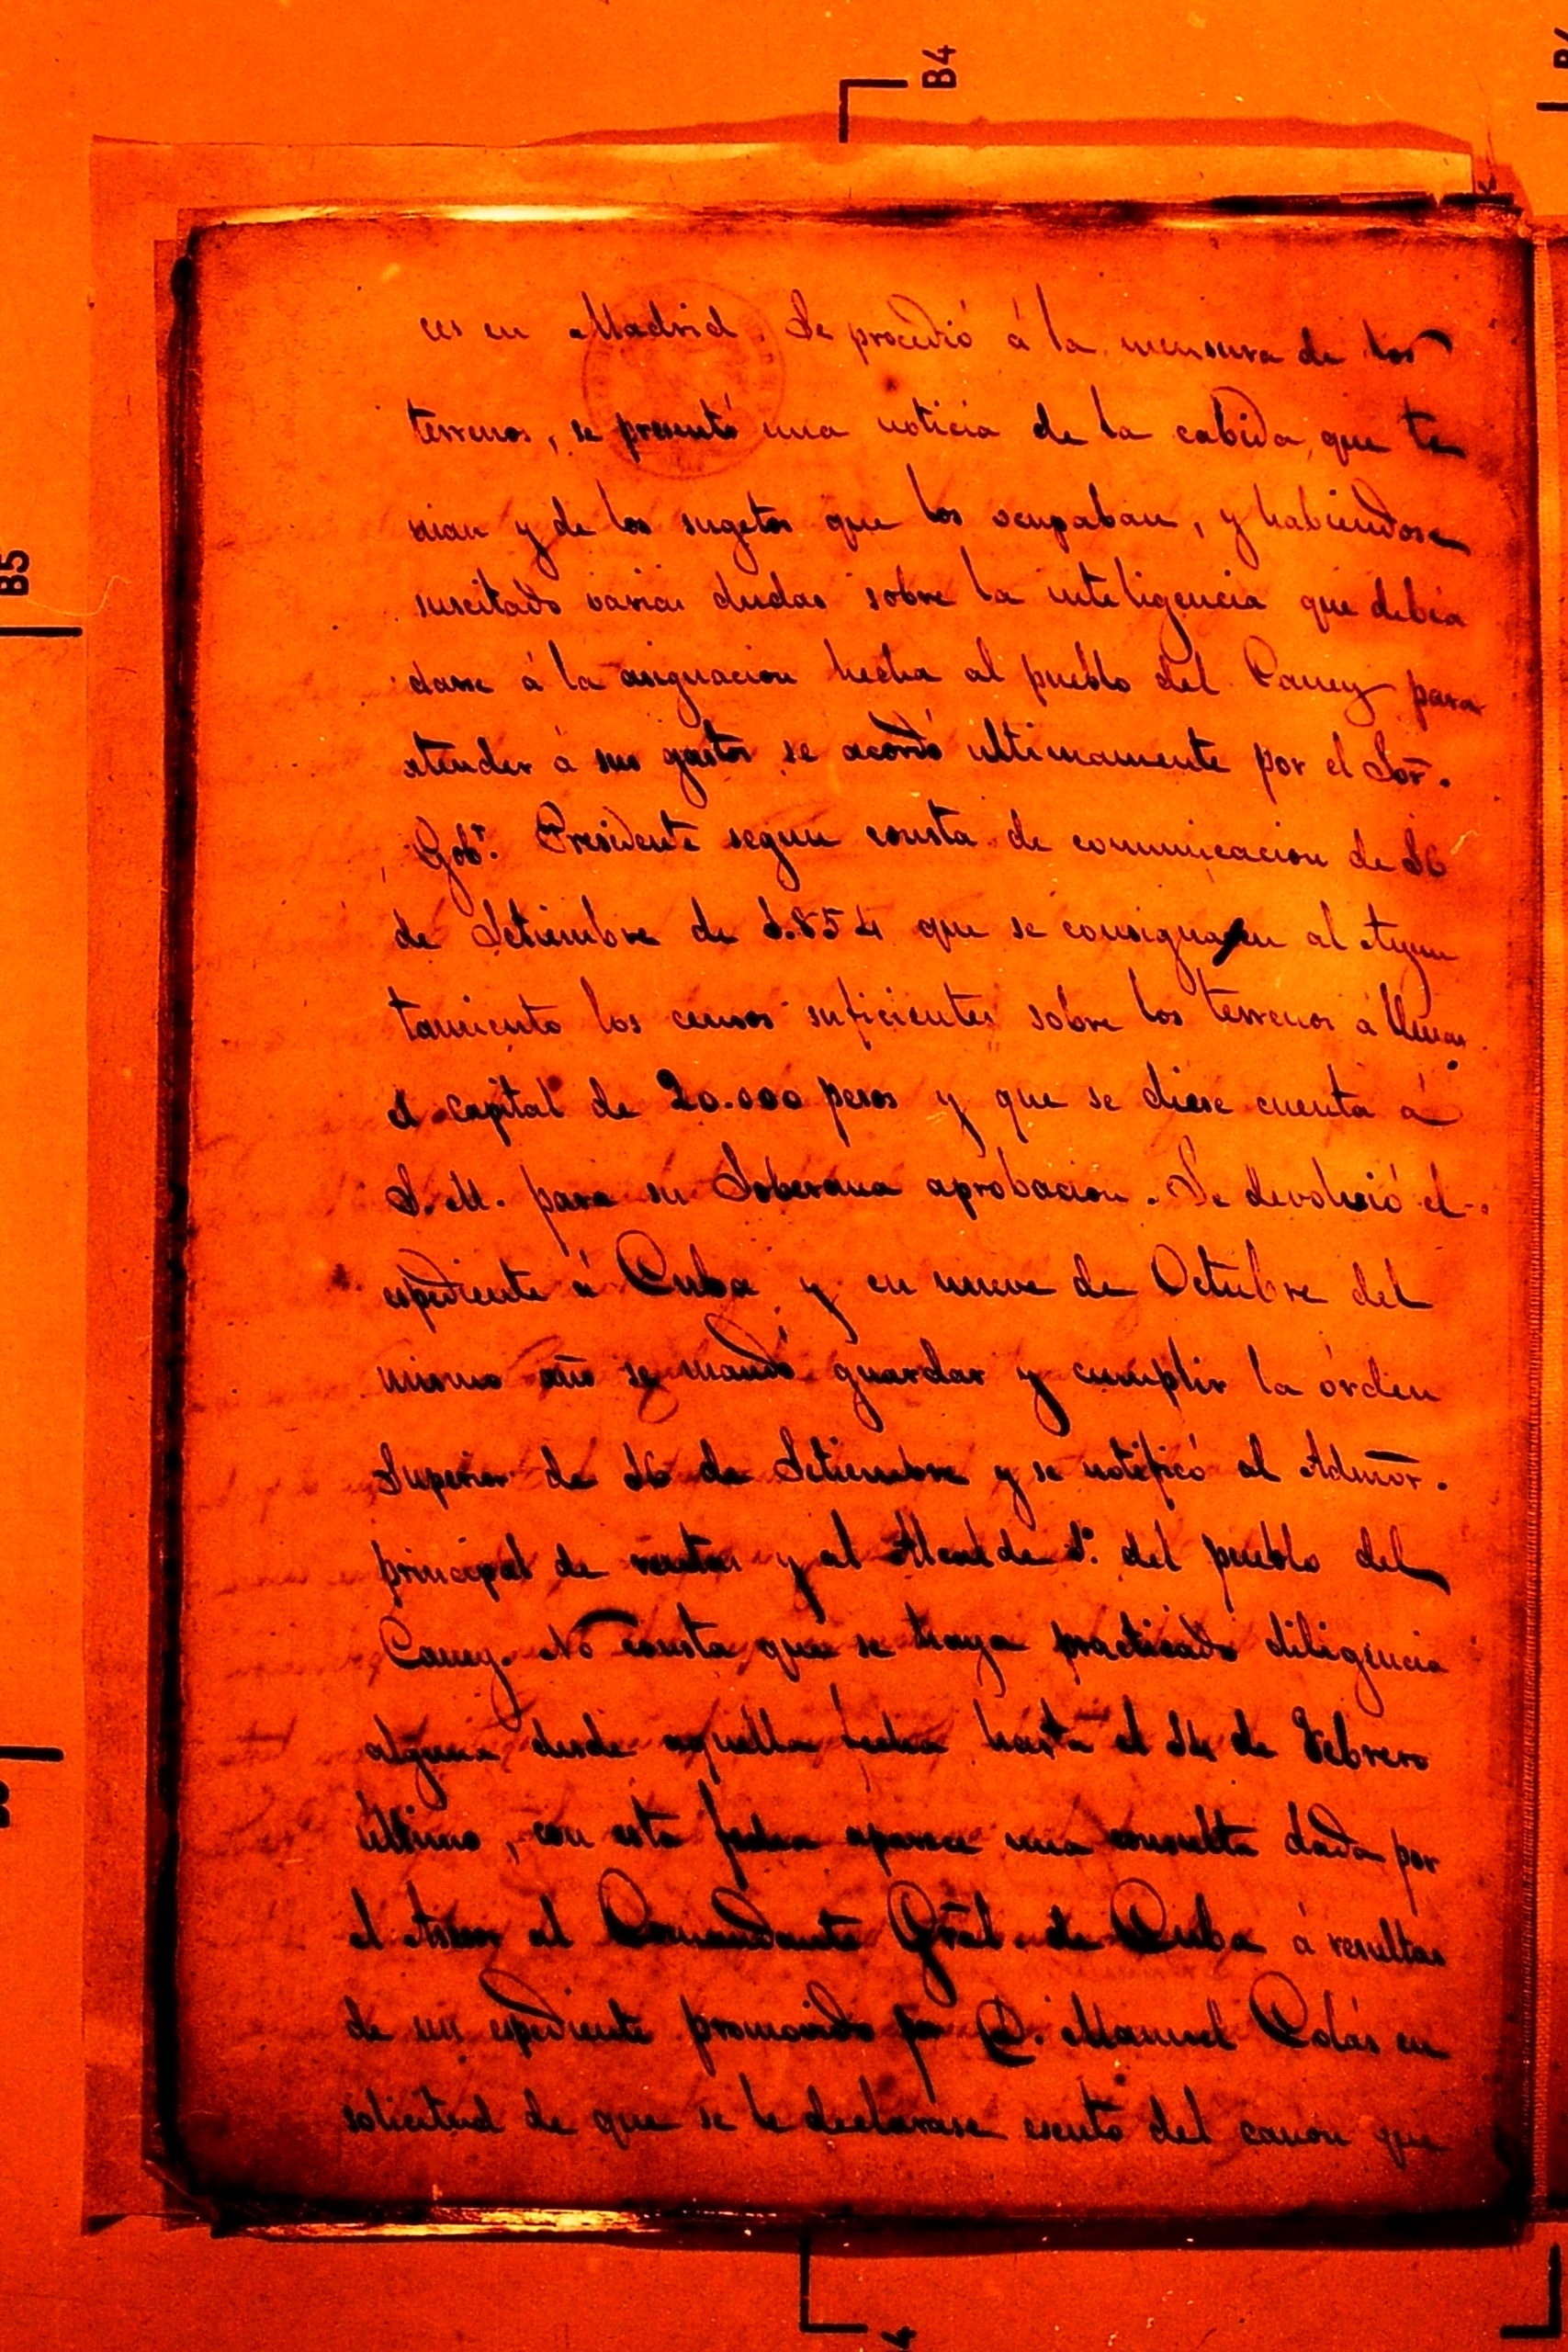 B4
B5
ces en Madrid. Se procedió á la mensura de los
terrenos, se presentó una noticia de la cabida, que te
nian y de los sugetos que los ocupaban, y habiendose
suscitado varias dudas sobre la inteligencia que debia
darse á la asignacion hecha al pueblo del Caney para
atender á sus gastos se acordó ultimamente por el Sor.
Gobr. Presidente segun consta de comunicacion de 16
de Setiembre de 1.854 que se consignasen al Ayun
tamiento los censos suficientes sobre los terrenos á llenar
el capital de 20.000 pesos y que se diese cuenta á
S. M. para su Soberana aprobacion. Se devolvió el
espediente á Cuba y en nueve de Octubre del
mismo año se mandó guardar y cumplir la órden
Superior de 16 de Setiembre y se notificó al Admor.
principal de rentas y al Alcalde 1º. del pueblo del
Caney. No consta que se haya practicado diligencia
alguna desde aquella fecha hasta el 14 de Febrero
último, con esta fecha aparece una consulta dada por
el Asesor al Comandante Gral. de Cuba á resultas
de un espediente promovido por D. Manuel Colás en
solicitud de que se le declarase esento del canon que